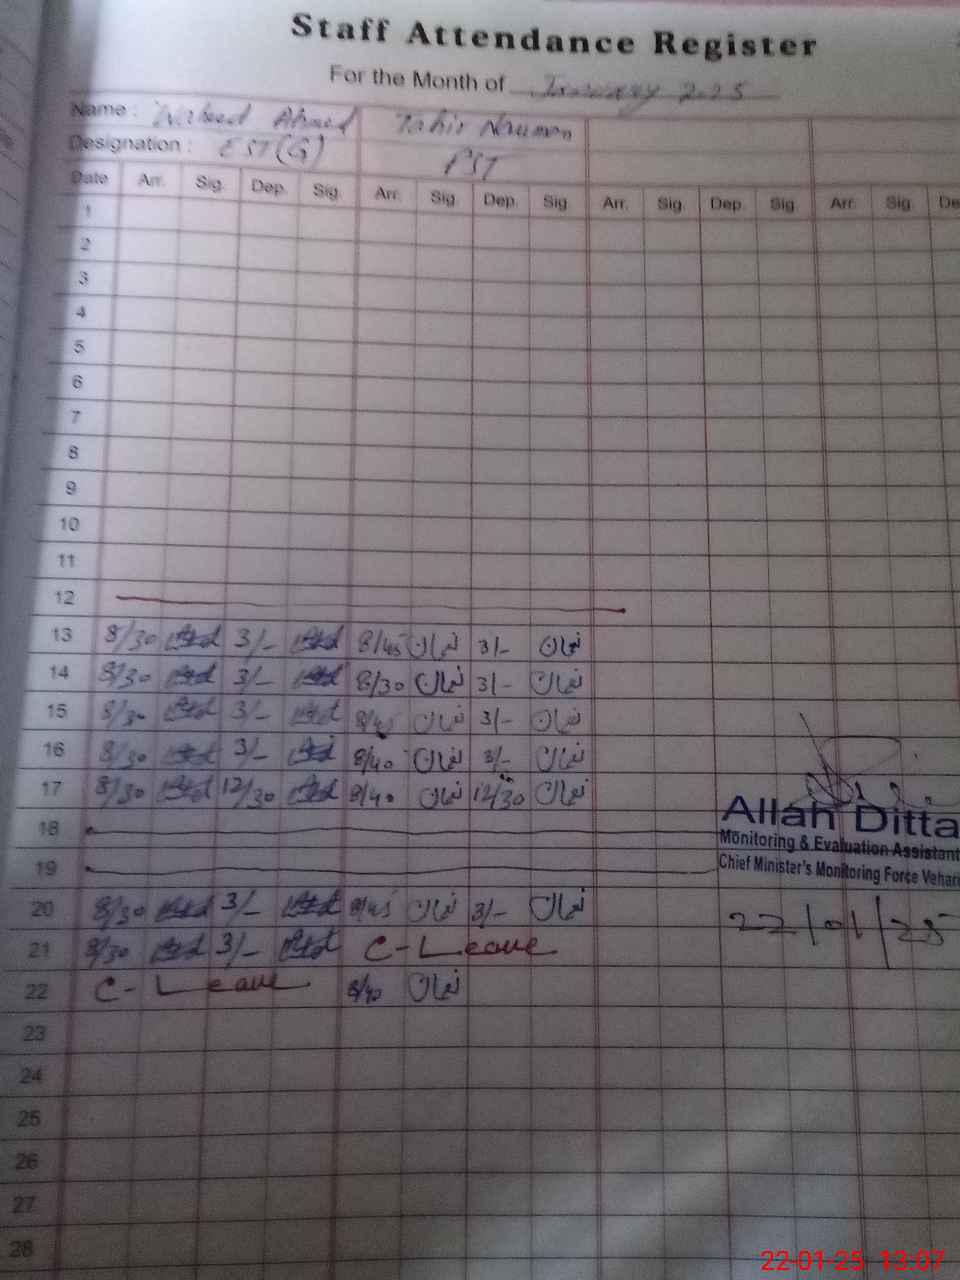 Staff Attendance Register
For the Month of January 2025
Name : Waheed Ahmed Tahir Nauman
Designation : EST(G) PST
Date Arr. Sig. Dep. Sig. Arr. Sig. Dep. Sig. Arr. Sig. Dep. Sig. Arr. Sig. De
1
2
3
4
5
6
7
8
9
10
11
12
13 8/30 3/- 8/45 نعمان 3/- نعمان
14 8/30 3/- 8/30 نعمان 3/- نعمان
15 8/30 3/- 8/45 نعمان 3/- نعمان
16 8/30 3/- 8/40 نعمان 3/- نعمان
17 8/30 12/30 8/40 نعمان 12/30 نعمان
Allah Ditta
18
Monitoring & Evaluation Assistant
19
Chief Minister's Monitoring Force Vehari
20 8/30 3/- 8/45 نعمان 3/- نعمان
22/01/25
21 8/30 3/- C-Leave
22 C-Leave 8/40 نعمان
23
24
25
26
27
28
22-01-25 13:07